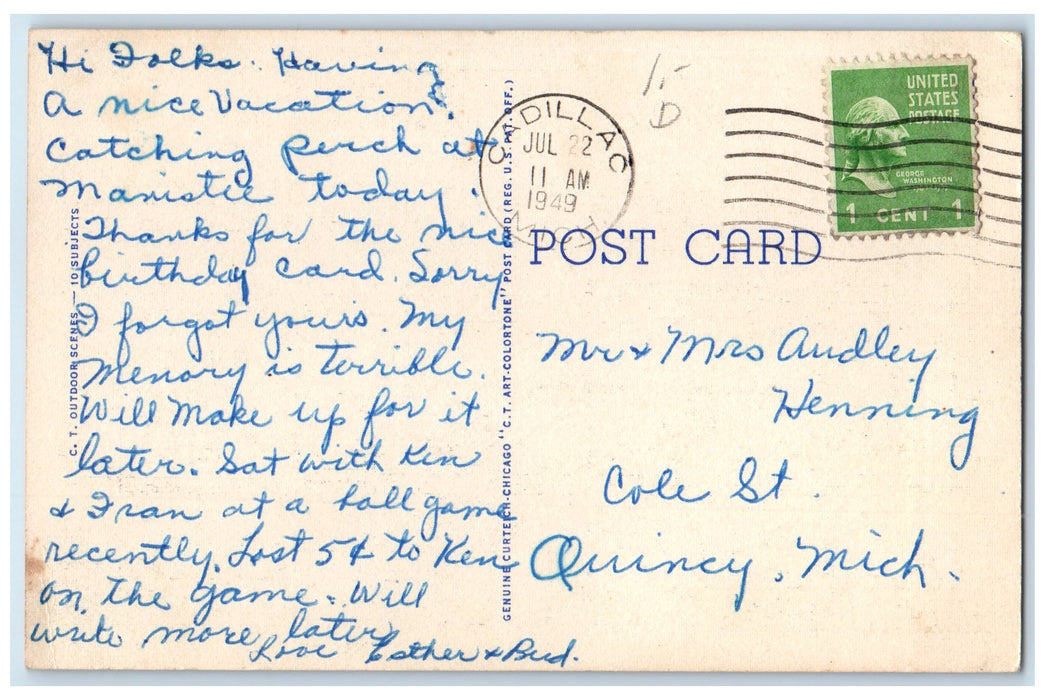 Hi Folks. Having
a nice Vacation.
Catching perch at
Manistee today.
Thanks for the nice
birthday card. Sorry
I forgot yours. My
Memory is terrible.
Will Make up for it
later. Sat with Ken
& Fran at a ball game
recently. Lost 5¢ to Ken
on the game. Will
write more later
Love Esther & Bud.
C. T. OUTDOOR SCENES — 10 SUBJECTS
GENUINE CURTEICH-CHICAGO "C. T. ART-COLORTONE" POST CARD (REG. U. S. PAT. OFF.)
CADILLAC
JUL 22
11 AM
1949
MICH
D
UNITED
STATES
POSTAGE
GEORGE
WASHINGTON
1 CENT 1
POST CARD
Mr & Mrs Audley
Henning
Cole St.
Quincy, Mich.